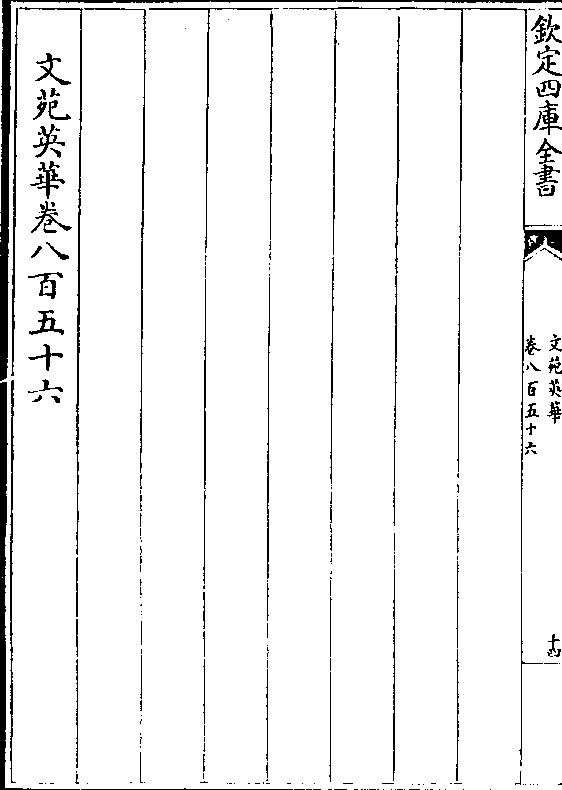 欽定四庫全書
文苑英華
卷八百五十六
十四
文苑英華卷八百五十六